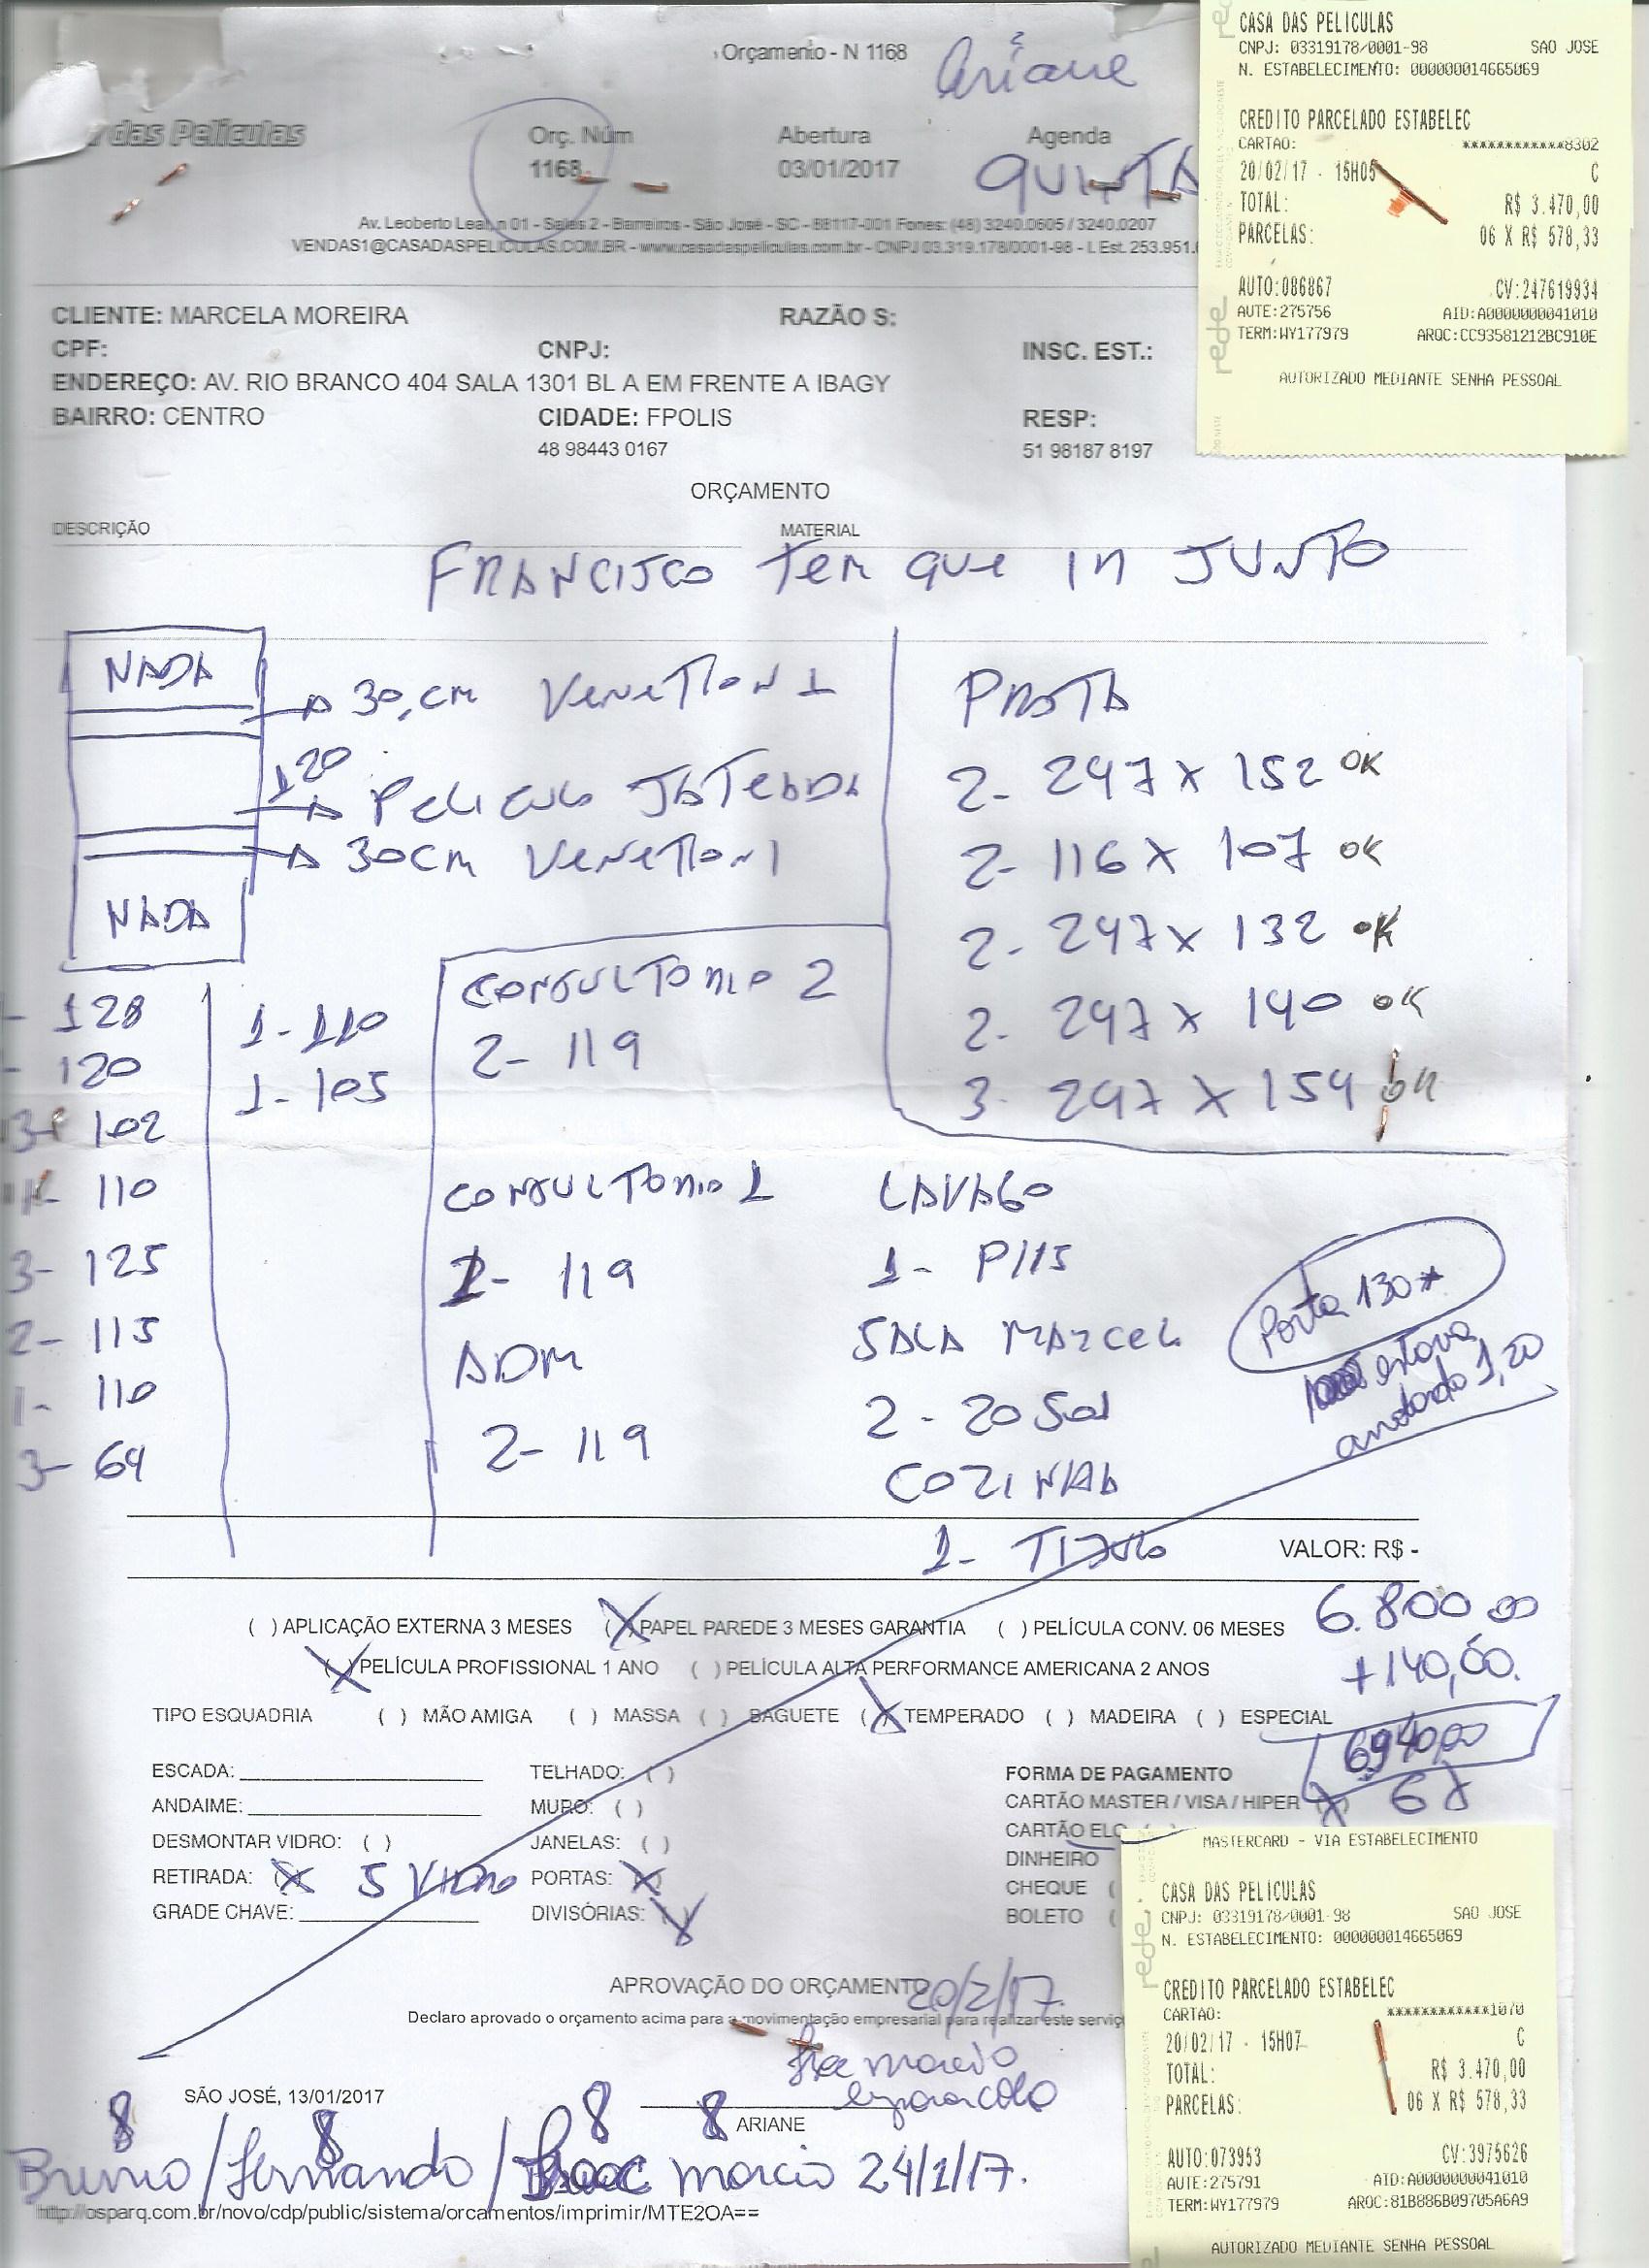 Orçamento - N 1168
Ariane
das Películas
Orç. Núm
Abertura
Agenda
1168
03/01/2017
QUINTA
Av. Leoberto Leal, n 01 - Salas 2 - Barreiros - São José - SC - 88117-001 Fones: (48) 3240.0605 / 3240.0207
VENDAS1@CASADASPELICULAS.COM.BR - www.casadaspeliculas.com.br - CNPJ 03.319.178/0001-98 - I. Est. 253.951.
CASA DAS PELICULAS
CNPJ: 03319178/0001-98 SAO JOSE
N. ESTABELECIMENTO: 000000014665069
CREDITO PARCELADO ESTABELEC
CARTAO: ************8302
20/02/17 - 15H05 C
TOTAL: R$ 3.470,00
PARCELAS: 06 X R$ 578,33
AUTO:086867 CV:247619934
AUTE:275756 AID:A0000000041010
TERM:WY177979 ARQC:CC93581212BC910E
AUTORIZADO MEDIANTE SENHA PESSOAL
rede
CLIENTE: MARCELA MOREIRA RAZÃO S:
CPF: CNPJ: INSC. EST.:
ENDEREÇO: AV. RIO BRANCO 404 SALA 1301 BL A EM FRENTE A IBAGY
BAIRRO: CENTRO CIDADE: FPOLIS RESP:
48 98443 0167 51 98187 8197
ORÇAMENTO
DESCRIÇÃO MATERIAL
FRANCISCO TEM QUE IR JUNTO
NADA
30,CM VENETTION 1
120
PELICULA JATEADA
30CM VENETTION 1
NADA
PORTA
2- 247 X 152 OK
2- 116 X 107 OK
2- 247 X 132 OK
2- 247 X 140 OK
3- 247 X 154 OK
- 128
- 120
3- 102
110
3- 125
2- 115
1- 110
3- 64
1- 110
1- 105
CONSULTORIO 2
2- 119
CONSULTORIO 1
2- 119
ADM
2- 119
LAVABO
1- P115
SALA MARCEL
2- 20 Sol
COZINHA
1-
Porta 130*
estava
anotado 1,20
VALOR: R$ -
6.800 00
+140,00.
6940,00
( ) APLICAÇÃO EXTERNA 3 MESES (X) PAPEL PAREDE 3 MESES GARANTIA ( ) PELÍCULA CONV. 06 MESES
(X) PELÍCULA PROFISSIONAL 1 ANO ( ) PELÍCULA ALTA PERFORMANCE AMERICANA 2 ANOS
TIPO ESQUADRIA ( ) MÃO AMIGA ( ) MASSA ( ) BAGUETE (X) TEMPERADO ( ) MADEIRA ( ) ESPECIAL
ESCADA: TELHADO: ( )
ANDAIME: MURO: ( )
DESMONTAR VIDRO: ( ) JANELAS: ( )
RETIRADA: (X) 5 VIDRO PORTAS: (X)
GRADE CHAVE: DIVISÓRIAS: (X)
FORMA DE PAGAMENTO
CARTÃO MASTER / VISA / HIPER (X) 6X
CARTÃO ELO
DINHEIRO
CHEQUE (
BOLETO (
MASTERCARD - VIA ESTABELECIMENTO
CASA DAS PELICULAS
CNPJ: 03319178/0001-98 SAO JOSE
N. ESTABELECIMENTO: 000000014665069
CREDITO PARCELADO ESTABELEC
CARTAO: ************1070
20/02/17 - 15H07 C
TOTAL: R$ 3.470,00
PARCELAS: 06 X R$ 578,33
AUTO:073953 CV:3975626
AUTE:275791 AID:A0000000041010
TERM:WY177979 ARQC:81B886B09705A6A9
AUTORIZADO MEDIANTE SENHA PESSOAL
rede
APROVAÇÃO DO ORÇAMENTO
20/2/17.
Declaro aprovado o orçamento acima para a movimentação empresarial para realizar este serviç
marcio
SÃO JOSÉ, 13/01/2017
ARIANE
8 8 8 8
Bruno / Fernando / Isaac marcio 24/1/17.
http://osparq.com.br/novo/cdp/public/sistema/orcamentos/imprimir/MTE2OA==